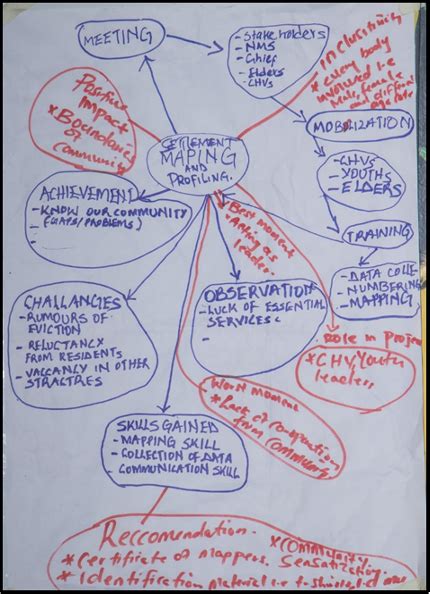 MEETING
Stakeholders
- NMS
- Chief
- Elders
- CHVs
inclusitivity
* every body
involved i.e
male, female
and different
age rate
Positive
impact
* Boundaries
of community
MOBILIZATION
- CHVs
- YOUTHS
- ELDERS
SETTLEMENT
MAPING
AND
PROFILING.
ACHIEVEMENT
- KNOW OUR COMMUNITY
(GAPS/PROBLEMS)
-
-
TRAINING
- DATA COLLE
- NUMBERING
- MAPPING
* Best moment
* Acting as
leader.
OBSERVATION
- LUCK OF ESSENTIAL
SERVICES.
-
CHALLANGIES
- RUMOURS OF
EVICTION
- RELUCTANCY
FROM RESIDENTS
- VACCANCY IN OTHER
STRACTRES
Role in project
* CHV, Youth
leaders
Worst moment
* Lack of cooperation
from community
SKILLS GAINED
- MAPPING SKILL
- COLLECTION OF DATA
- COMMUNICATION SKILL
Reccomendation.
* Community
Sensatization.
* Certificate of mappers.
* Identification material i.e t-shirts